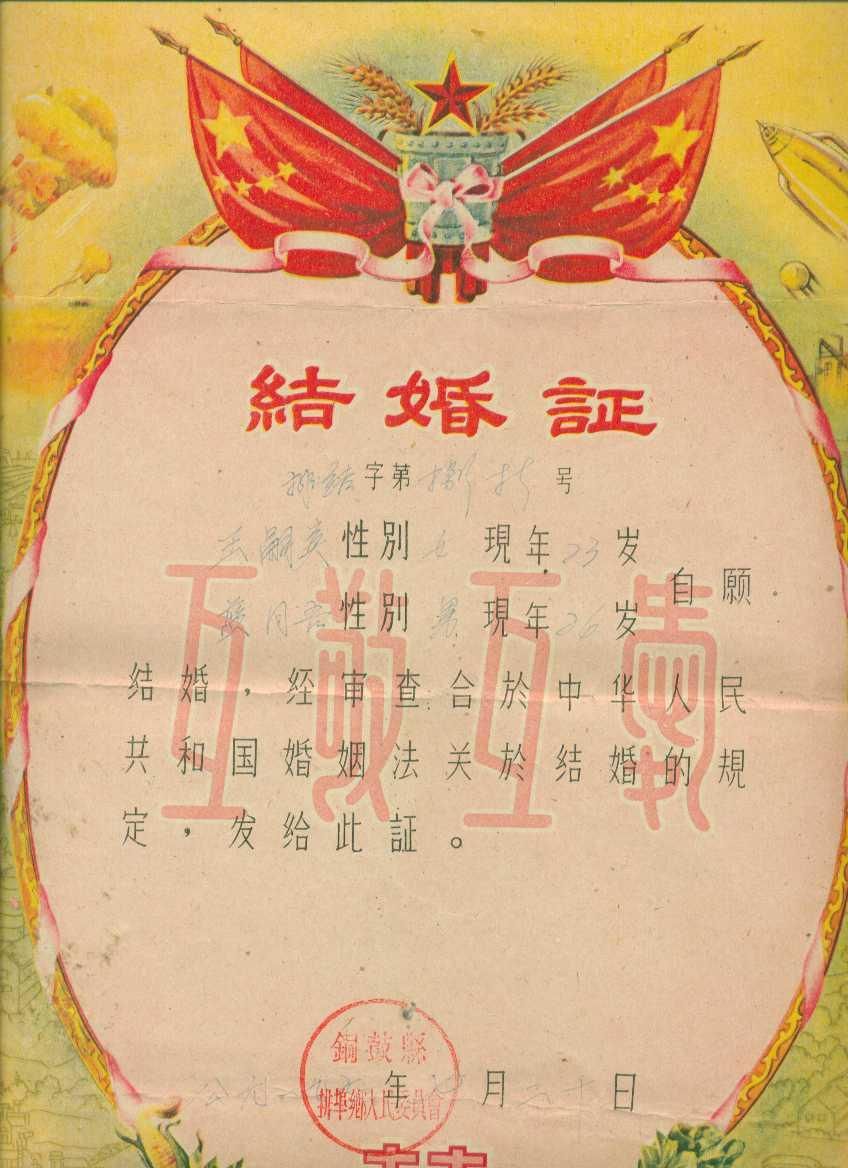 結婚証
字第 号
性別 女 現年 23 岁
性別 男 現年 26 岁
自愿
結婚，经审查合於中华人民
共和国婚姻法关於结婚的規
定，发给此証。
互敬互爱
銅鼓縣
排華鄉人民委員會
年 月 二十 日